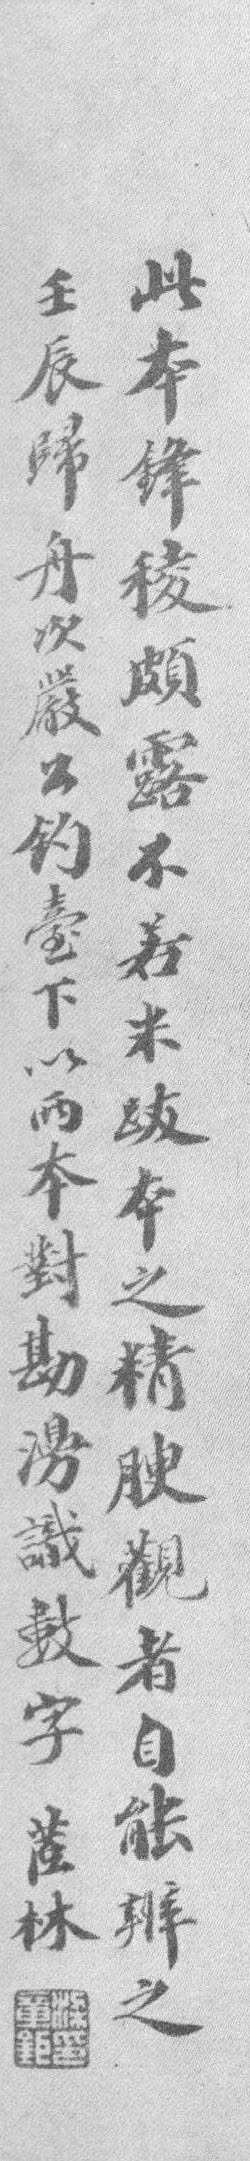 此本鋒稜頗露不若米跋本之精腴觀者自能辨之
壬辰歸舟次嚴公釣臺下以兩本對勘漫識數字 茝林
梁章鉅印